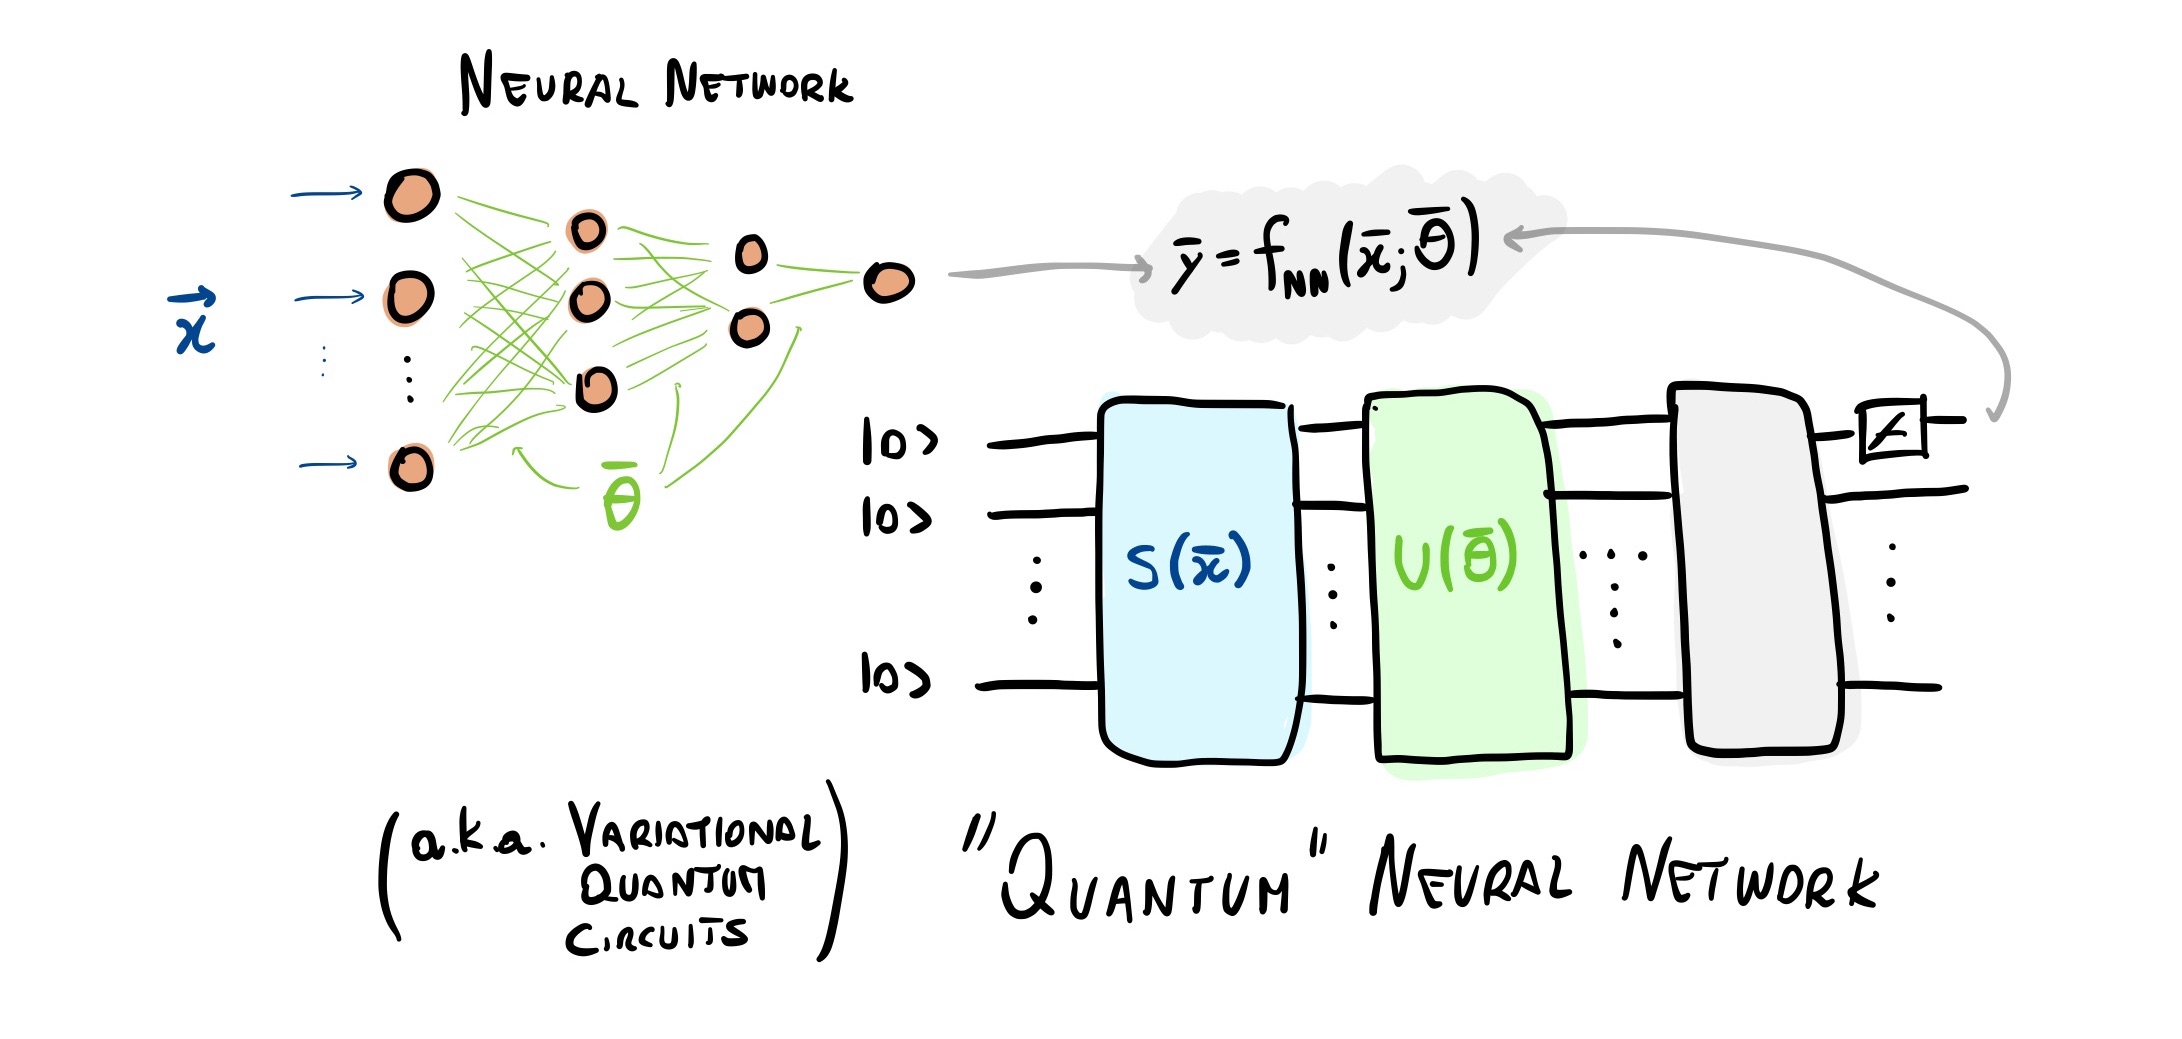 NEURAL NETWORK
x⃗
θ̄
ȳ = f_NN(x̄; θ̄)
|0⟩
|0⟩
|0⟩
S(x̄)
U(θ̄)
(a.k.a. VARIATIONAL
QUANTUM
CIRCUITS)
"QUANTUM" NEURAL NETWORK